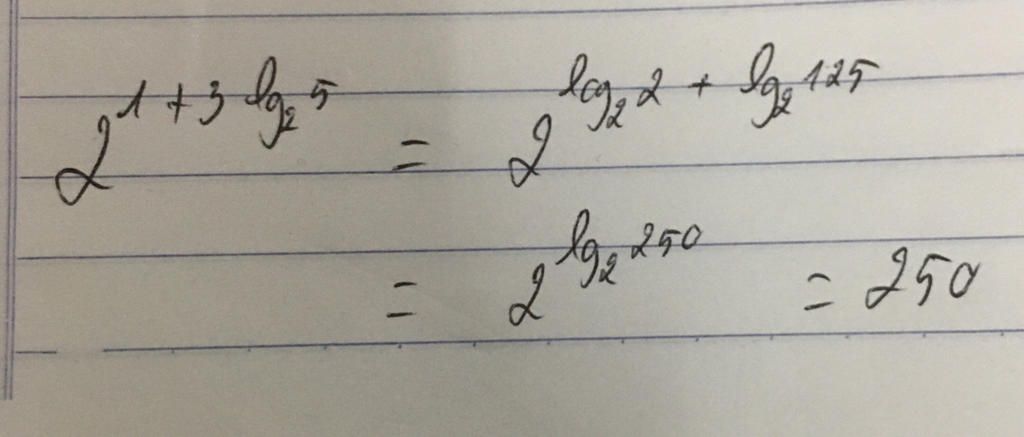 2^{1+3 lg_2 5} = 2^{log_2 2 + lg_2 125}
= 2^{lg_2 250} = 250